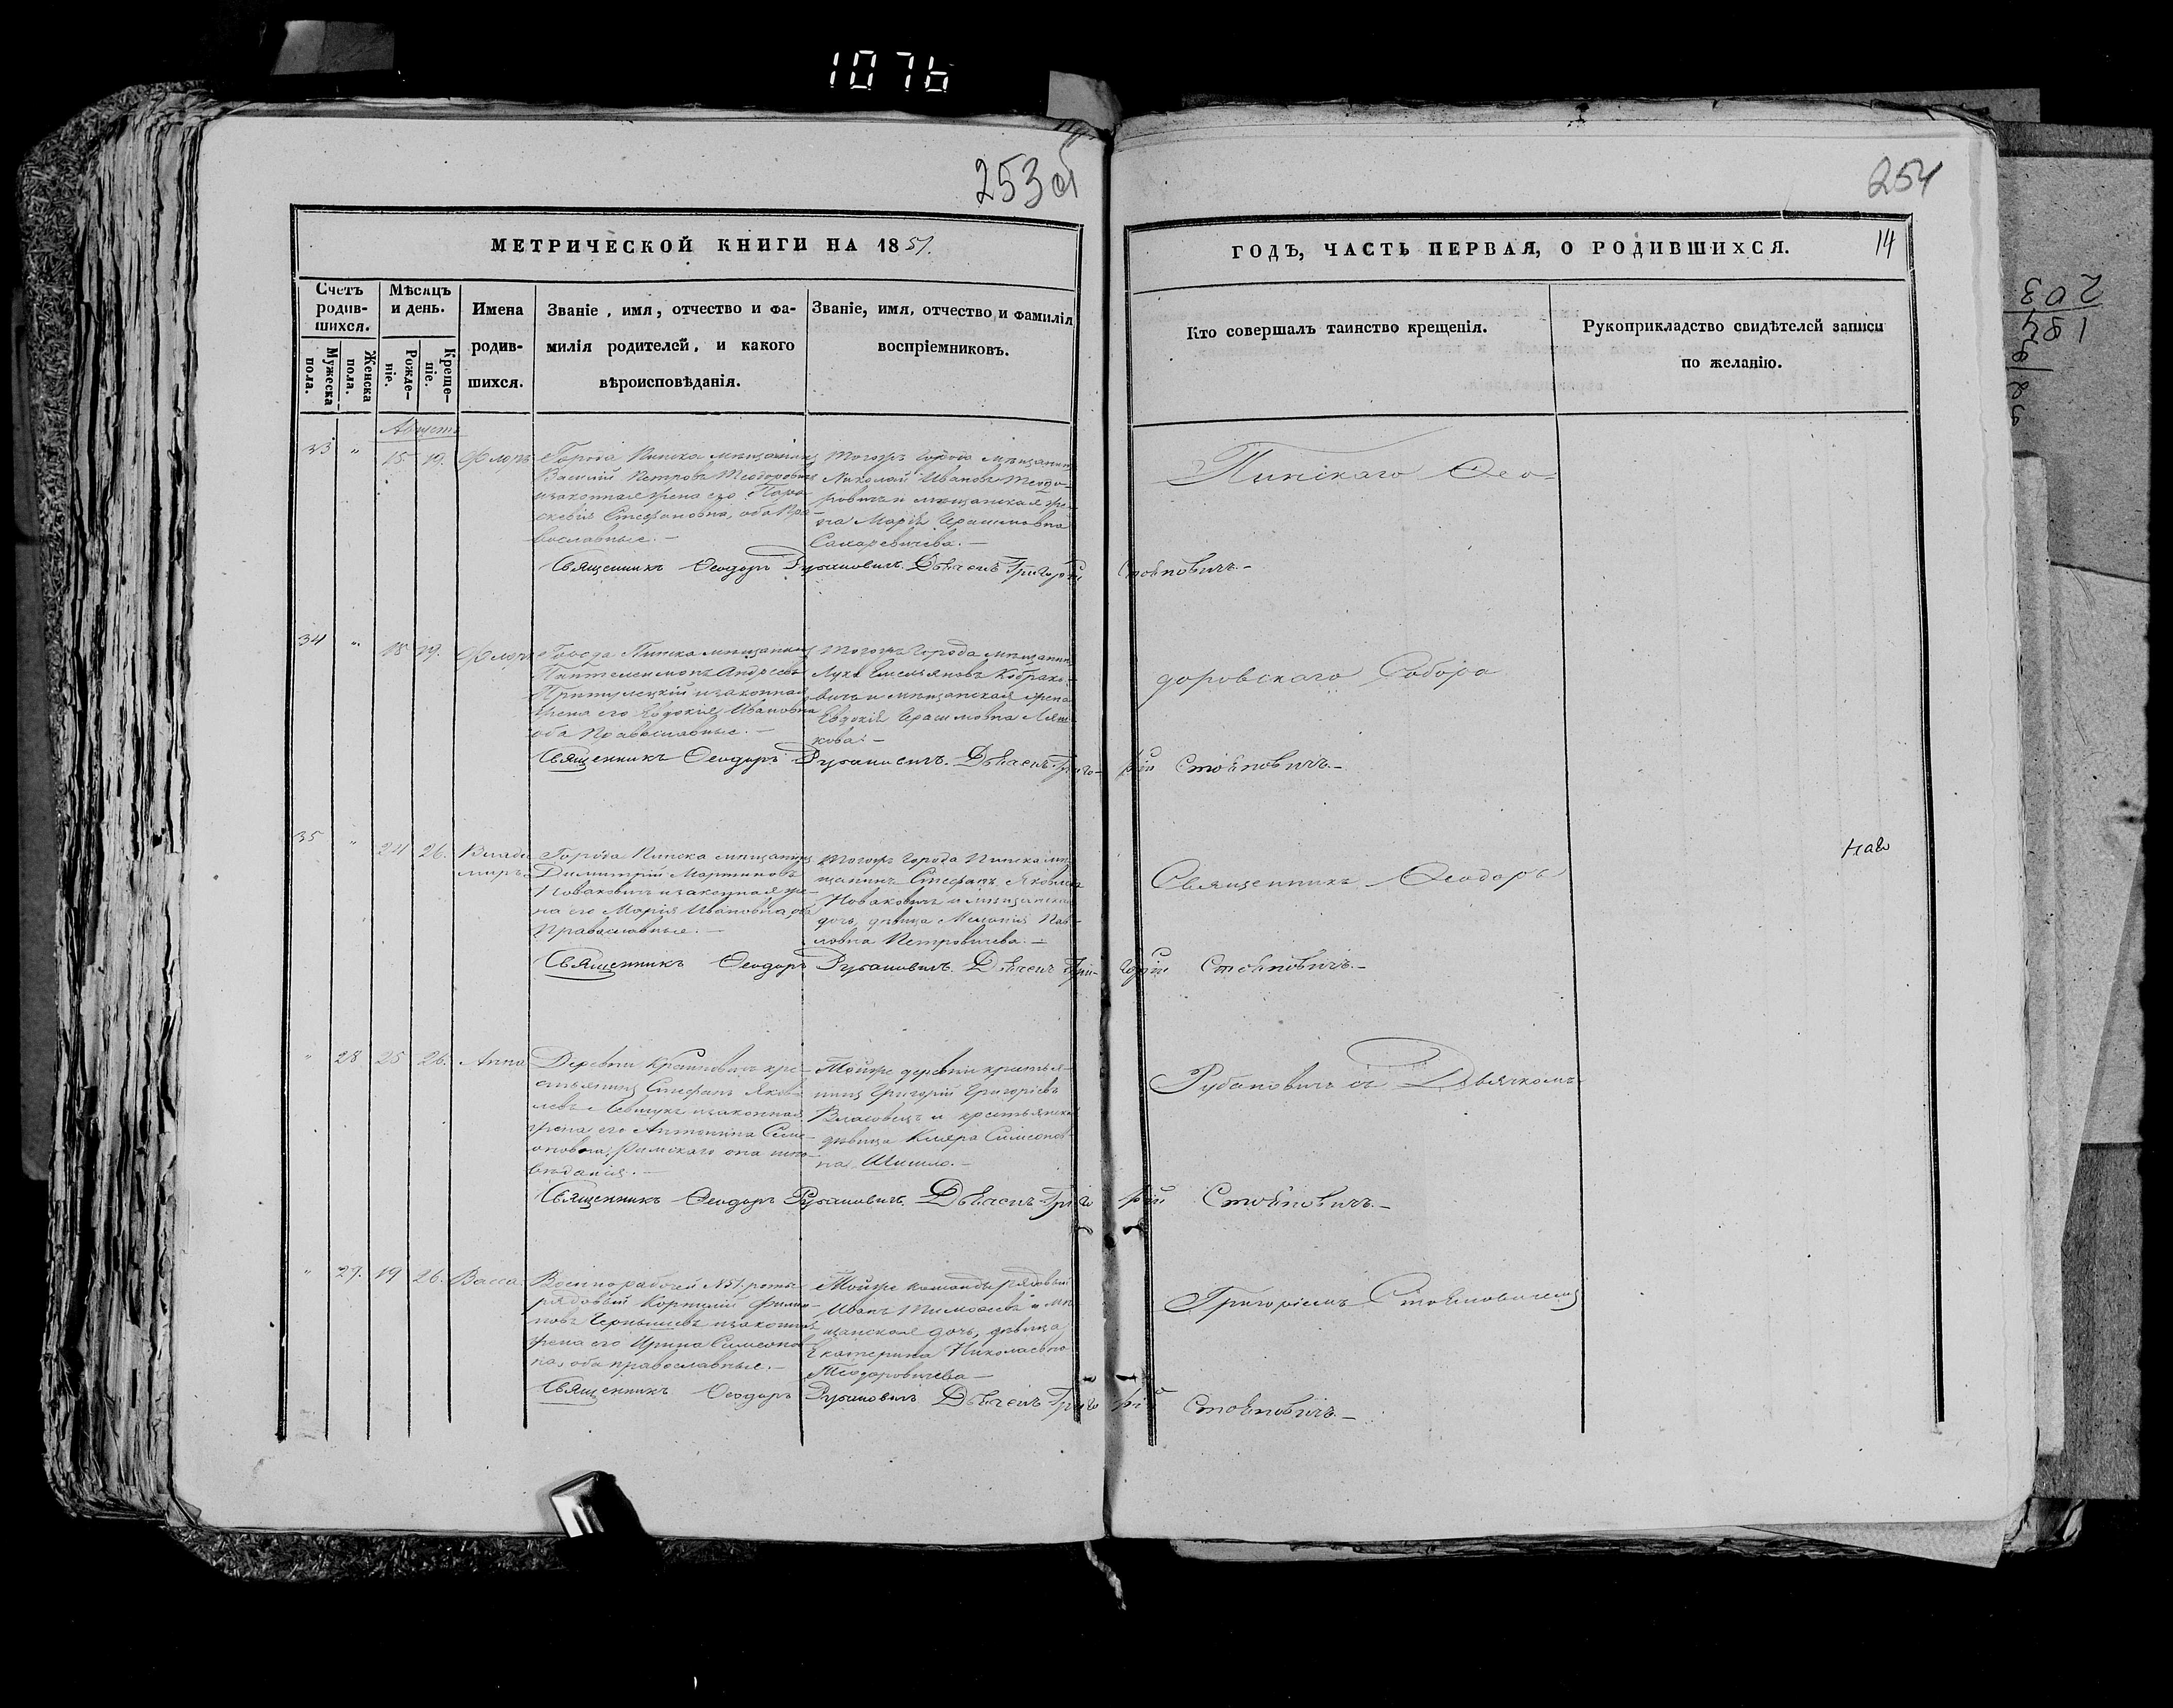 1076
253 об
254
МЕТРИЧЕСКОЙ КНИГИ НА 1851.
ГОДЪ, ЧАСТЬ ПЕРВАЯ, О РОДИВШИХСЯ.
14
Счетъ родив-шихся.
Мужеска пола.
Женска пола.
Мѣсяцъ и день.
Рожде-ніе.
Креще-ніе.
Имена
родив-
шихся.
Званіе, имя, отчество и фа-
милія родителей, и какого
вѣроисповѣданія.
Званіе, имя, отчество и фамилія
воспріемниковъ.
Кто совершалъ таинство крещенія.
Рукоприкладство свидѣтелей записи
по желанію.
Августъ
33 " 15. 19. Флоръ
Города Пинска мѣщанинъ
Василій Петровъ Теодоровичъ
и законная жена его Пара-
скевія Стефановна, оба Пра-
вославные. —
Тогожъ города мѣщанинъ
Николай Ивановъ Теодо-
ровичъ и мѣщанская же-
на Марія Герасимовна
Священникъ Ѳеодоръ Рубановичъ. Дьячекъ Григорій Стояновичъ. —
34 " 18 19. Флоръ
Города Пинска мѣщанинъ
Пантелеимонъ Андреевъ
и законная
жена его Евдокія Ивановна
оба Православные. —
Тогожъ города мѣщанинъ
Лука Емельяновъ
и мѣщанская жена
Евдокія Герасимовна
Священникъ Ѳеодоръ Рубановичъ. Дьячекъ Григо-рій Стояновичъ. —
35 " 24 26. Влади-
миръ
Города Пинска мѣщанинъ
Димитрій Мартиновъ
Новаковичъ и законная же-
на его Марія Ивановна, оба
Православные. —
Тогожъ города Пинска мѣ-
щанинъ Стефанъ Яковлевъ
Новаковичъ и мѣщанская
дочь, дѣвица Меланія Пав-
ловна Петровичева. —
Священникъ Ѳеодоръ Рубановичъ. Дьячекъ Гри-горій Стояновичъ. —
" 28 25 26. Анна
Деревни кре-
стьянинъ Стефанъ Яков-
левъ Левчукъ и законная
жена его Антонина Симе-
оновна, Римскаго она испо-
вѣданія. —
Тойже деревни крестья-
нинъ Григорій Григорьевъ
Власовецъ и крестьянская
дѣвица Клара Симеонов-
на Шишло. —
Священникъ Ѳеодоръ Рубановичъ. Дьячекъ Григо-рій Стояновичъ. —
" 29. 19 26. Васса
Военнорабочей №51 роты
рядовый Корнилій Филип-
повъ Чернышевъ и законная
жена его Ирина Симеонов-
на, оба православные. —
Тойже команды рядовый
Иванъ Тимофеевъ и мѣ-
щанская дочь, дѣвица
Екатерина Николаевна
Теодоровичева —
Священникъ Ѳеодоръ Рубановичъ Дьячекъ Григо-рій Стояновичъ. —
Пинскаго Ѳео-
доровскаго Собора
Священникъ Ѳеодоръ
Рубановичъ съ Дьячкомъ
Григоріемъ Стояновичемъ